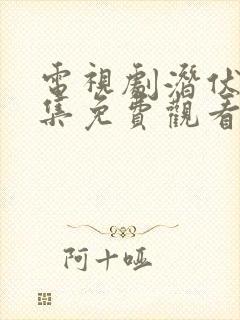 電視劇潛伏
集免費觀看
阿十啞